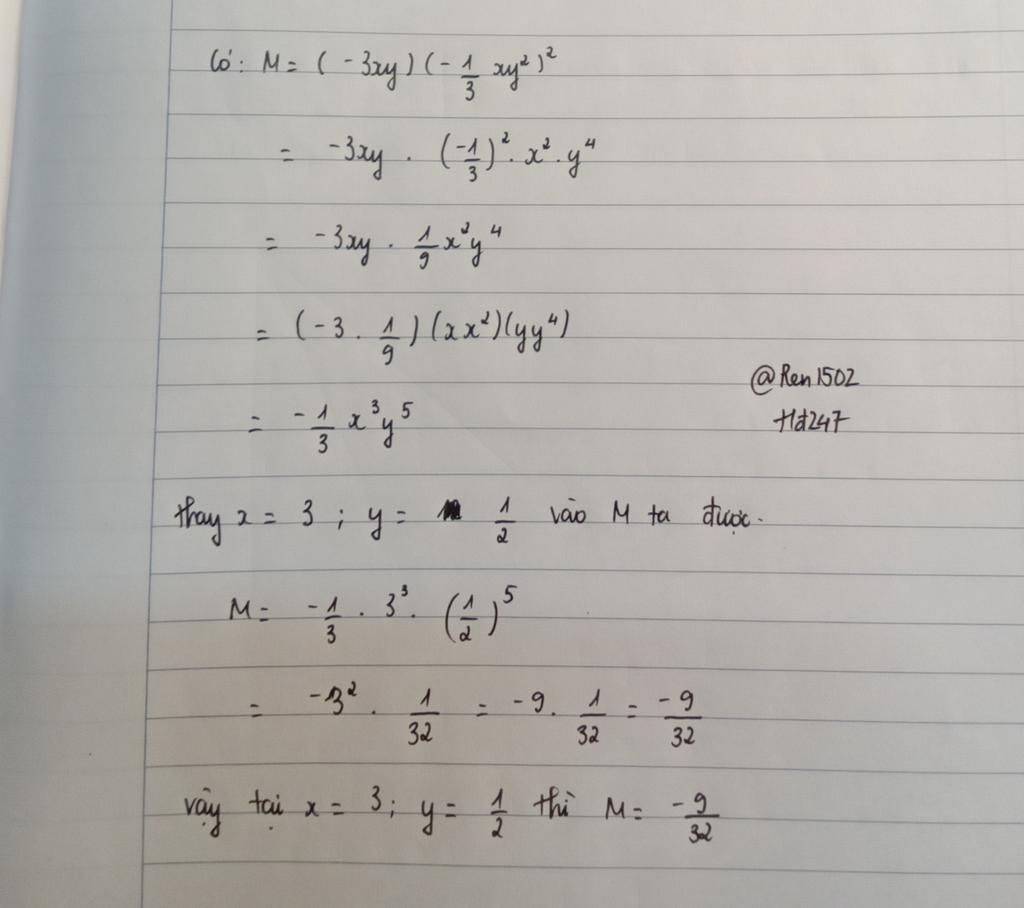 Có: M = (-3xy)(-1/3 xy²)²
= -3xy . (-1/3)² . x² . y⁴
= -3xy . 1/9 x²y⁴
= (-3 . 1/9)(xx²)(yy⁴)
@Ren1502
= -1/3 x³y⁵
Hd247
thay x = 3 ; y = 1/2 vào M ta được.
M = -1/3 . 3³ . (1/2)⁵
= -3² . 1/32 = -9 . 1/32 = -9/32
vậy tại x = 3 ; y = 1/2 thì M = -9/32